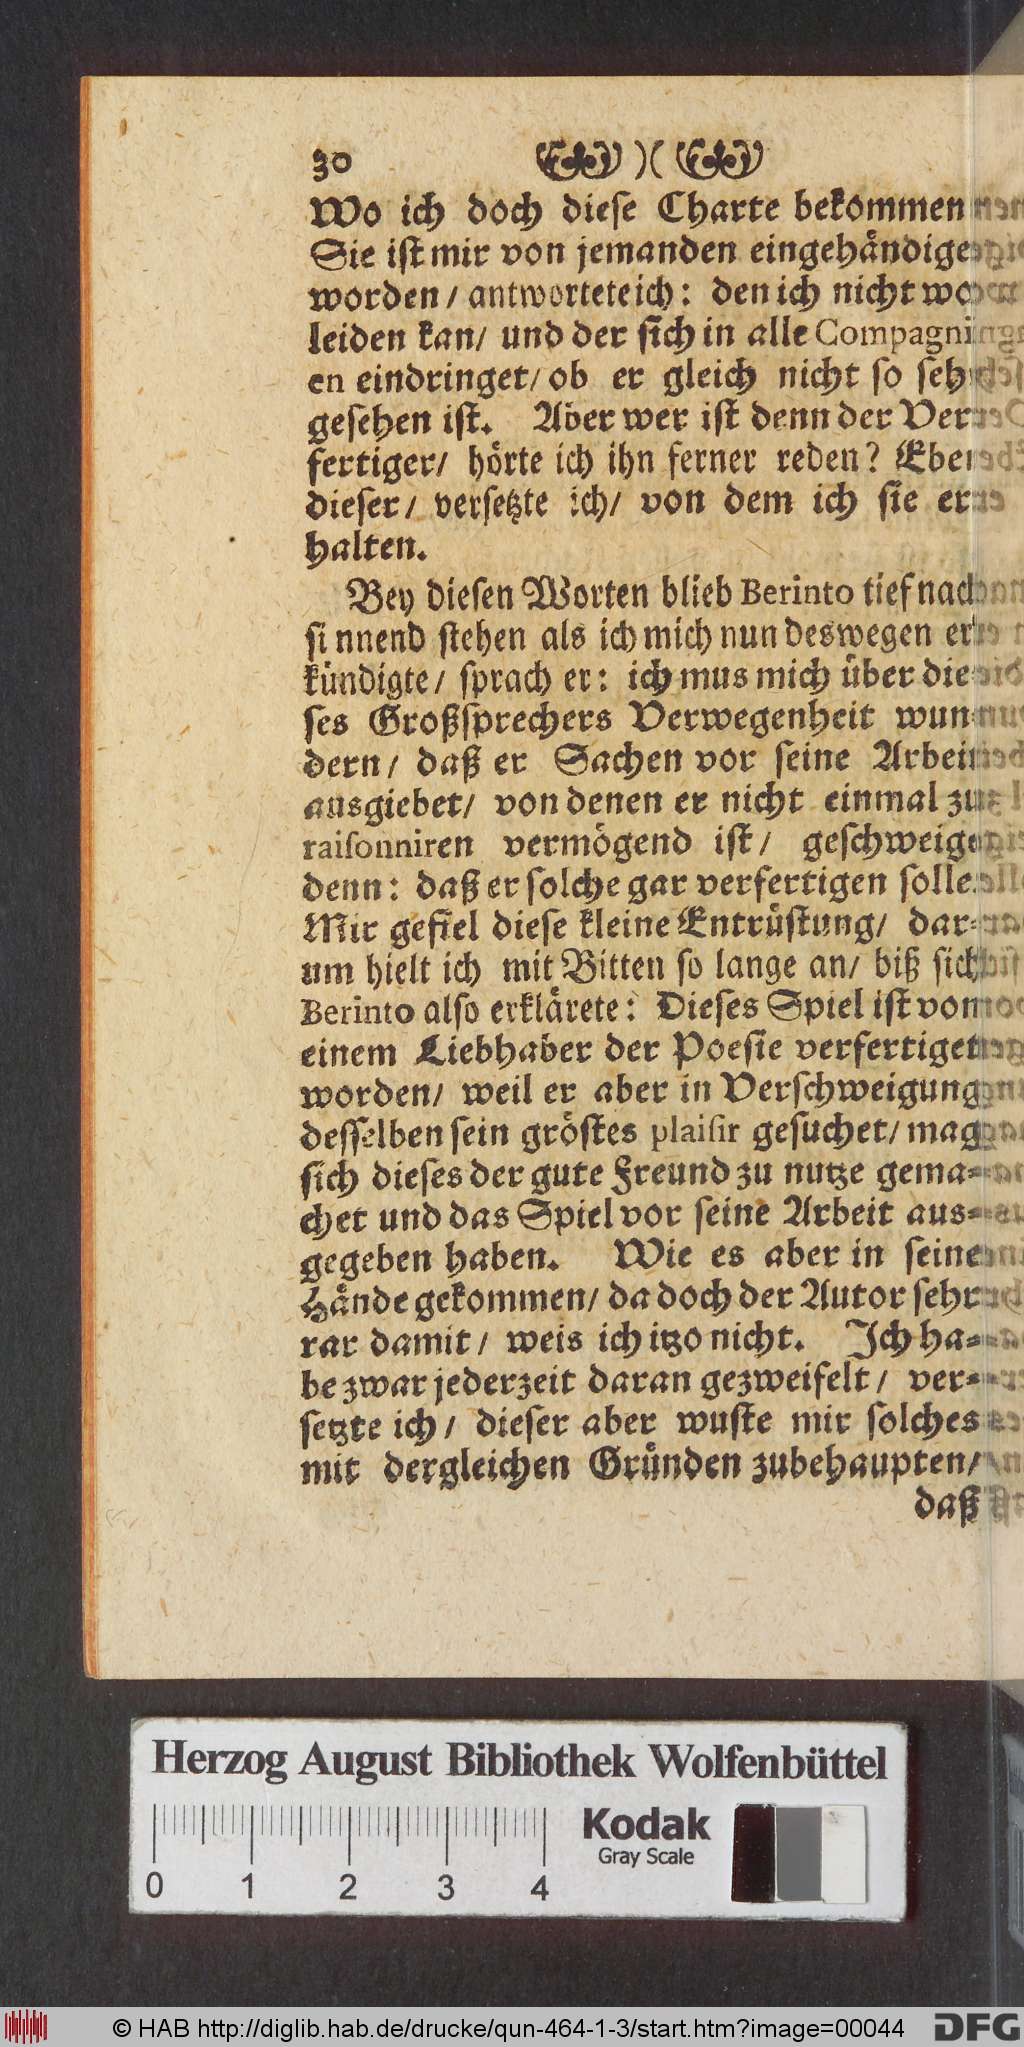 30 )(
Wo ich doch diese Charte bekommen
Sie ist mir von jemanden eingehändige
worden / antwortete ich: den ich nicht wo
leiden kan/ und der sich in alle Compagni
en eindringet/ ob er gleich nicht so seh
gesehen ist. Aber wer ist denn der Ver
fertiger/ hörte ich ihn ferner reden? Eben
dieser / versetzte ich/ von dem ich sie er
halten.
Bey diesen Worten blieb Berinto tief nach
sinnend stehen als ich mich nun deswegen er
kündigte / sprach er: ich mus mich über die
ses Großsprechers Verwegenheit wun
dern / daß er Sachen vor seine Arbeit
ausgiebet/ von denen er nicht einmal zu
raisonniren vermögend ist / geschweige
denn: daß er solche gar verfertigen solle.
Mir gefiel diese kleine Entrüstung/ dar-
um hielt ich mit Bitten so lange an/ biß sich
Berinto also erklärete: Dieses Spiel ist von
einem Liebhaber der Poesie verfertiget
worden/ weil er aber in Verschweigung
desselben sein gröstes plaisir gesuchet/ mag
sich dieses der gute Freund zu nutze gema-
chet und das Spiel vor seine Arbeit aus-
gegeben haben. Wie es aber in seine
Hände gekommen/ da doch der Autor sehr
rar damit / weis ich itzo nicht. Ich ha-
be zwar jederzeit daran gezweifelt / ver-
setzte ich / dieser aber wuste mir solches
mit dergleichen Gründen zubehaupten/
daß
Herzog August Bibliothek Wolfenbüttel
0 1 2 3 4
Kodak
Gray Scale
© HAB http://diglib.hab.de/drucke/qun-464-1-3/start.htm?image=00044
DFG